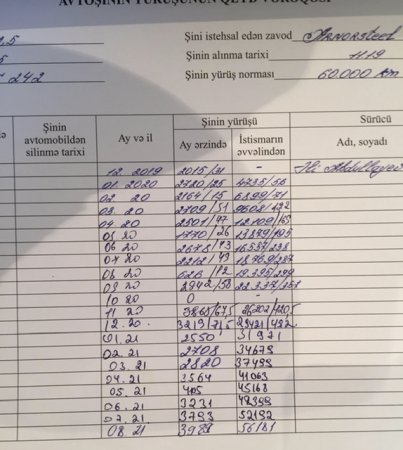 AVTOŞİNİN YÜRÜŞÜNÜN QEYD VƏRƏQƏSİ
Şini istehsal edən zavod Armorsteel
Şinin alınma tarixi 11.19
242 Şinin yürüş norması 60.000 km
Şinin avtomobildən silinmə tarixi
Ay və il
Şinin yürüşü
Ay ərzində
İstismarın əvvəlindən
Sürücü
Adı, soyadı
12. 2019 2015/31 -
01. 2020 2720/25 4735/56
02. 20 2164/15 6899/71
03. 20 2709/51 9608/122
04. 20 2501/47 12109/169
05. 20 1770/26 13879/195
06. 20 2678/43 16557/238
07. 20 2212/49 18769/287
08. 20 626/12 19395/299
09. 20 2942/58 22337/357
10. 20 0 -
11. 20 3865/67,5 26202/420,5
12. 20. 3219/71,5 29421/492
01. 21 2550 31971
02. 21 2708 34679
03. 21 2820 37499
04. 21 3564 41063
05. 21 45168
06. 21 3231 48399
07. 21 3793 52192
08. 21 3989 56181